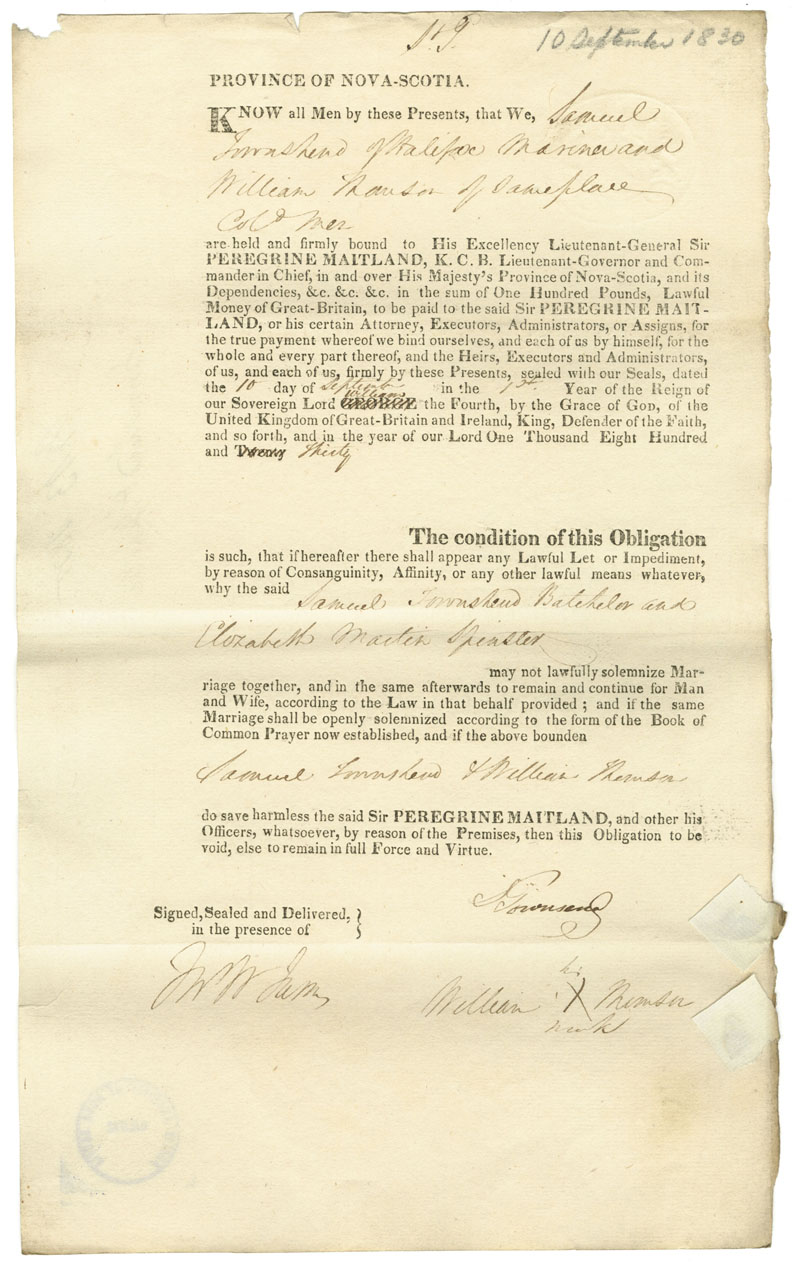 St P.
10 September 1830
PROVINCE OF NOVA-SCOTIA.
KNOW all Men by these Presents, that We, Samuel
Townshend of Halifax Mariner and
William Thomson of Same place
Col'd Men
are held and firmly bound to His Excellency Lieutenant-General Sir
PEREGRINE MAITLAND, K. C. B. Lieutenant-Governor and Com-
mander in Chief, in and over His Majesty's Province of Nova-Scotia, and its
Dependencies, &c. &c. &c. in the sum of One Hundred Pounds, Lawful
Money of Great-Britain, to be paid to the said Sir PEREGRINE MAIT-
LAND, or his certain Attorney, Executors, Administrators, or Assigns, for
the true payment whereof we bind ourselves, and each of us by himself, for the
whole and every part thereof, and the Heirs, Executors and Administrators,
of us, and each of us, firmly by these Presents, sealed with our Seals, dated
the 10 day of September in the 1st Year of the Reign of
our Sovereign Lord GEORGE William the Fourth, by the Grace of GOD, of the
United Kingdom of Great-Britain and Ireland, King, Defender of the Faith,
and so forth, and in the year of our Lord One Thousand Eight Hundred
and Twenty Thirty
The condition of this Obligation
is such, that if hereafter there shall appear any Lawful Let or Impediment,
by reason of Consanguinity, Affinity, or any other lawful means whatever,
why the said
Samuel Townshend Batchelor and
Elizabeth Martin Spinster
may not lawfully solemnize Mar-
riage together, and in the same afterwards to remain and continue for Man
and Wife, according to the Law in that behalf provided ; and if the same
Marriage shall be openly solemnized according to the form of the Book of
Common Prayer now established, and if the above bounden
Samuel Townshend & William Thomson
do save harmless the said Sir PEREGRINE MAITLAND, and other his
Officers, whatsoever, by reason of the Premises, then this Obligation to be
void, else to remain in full Force and Virtue.
S Townsend
Signed, Sealed and Delivered,
in the presence of
his
William X Thomson
mark